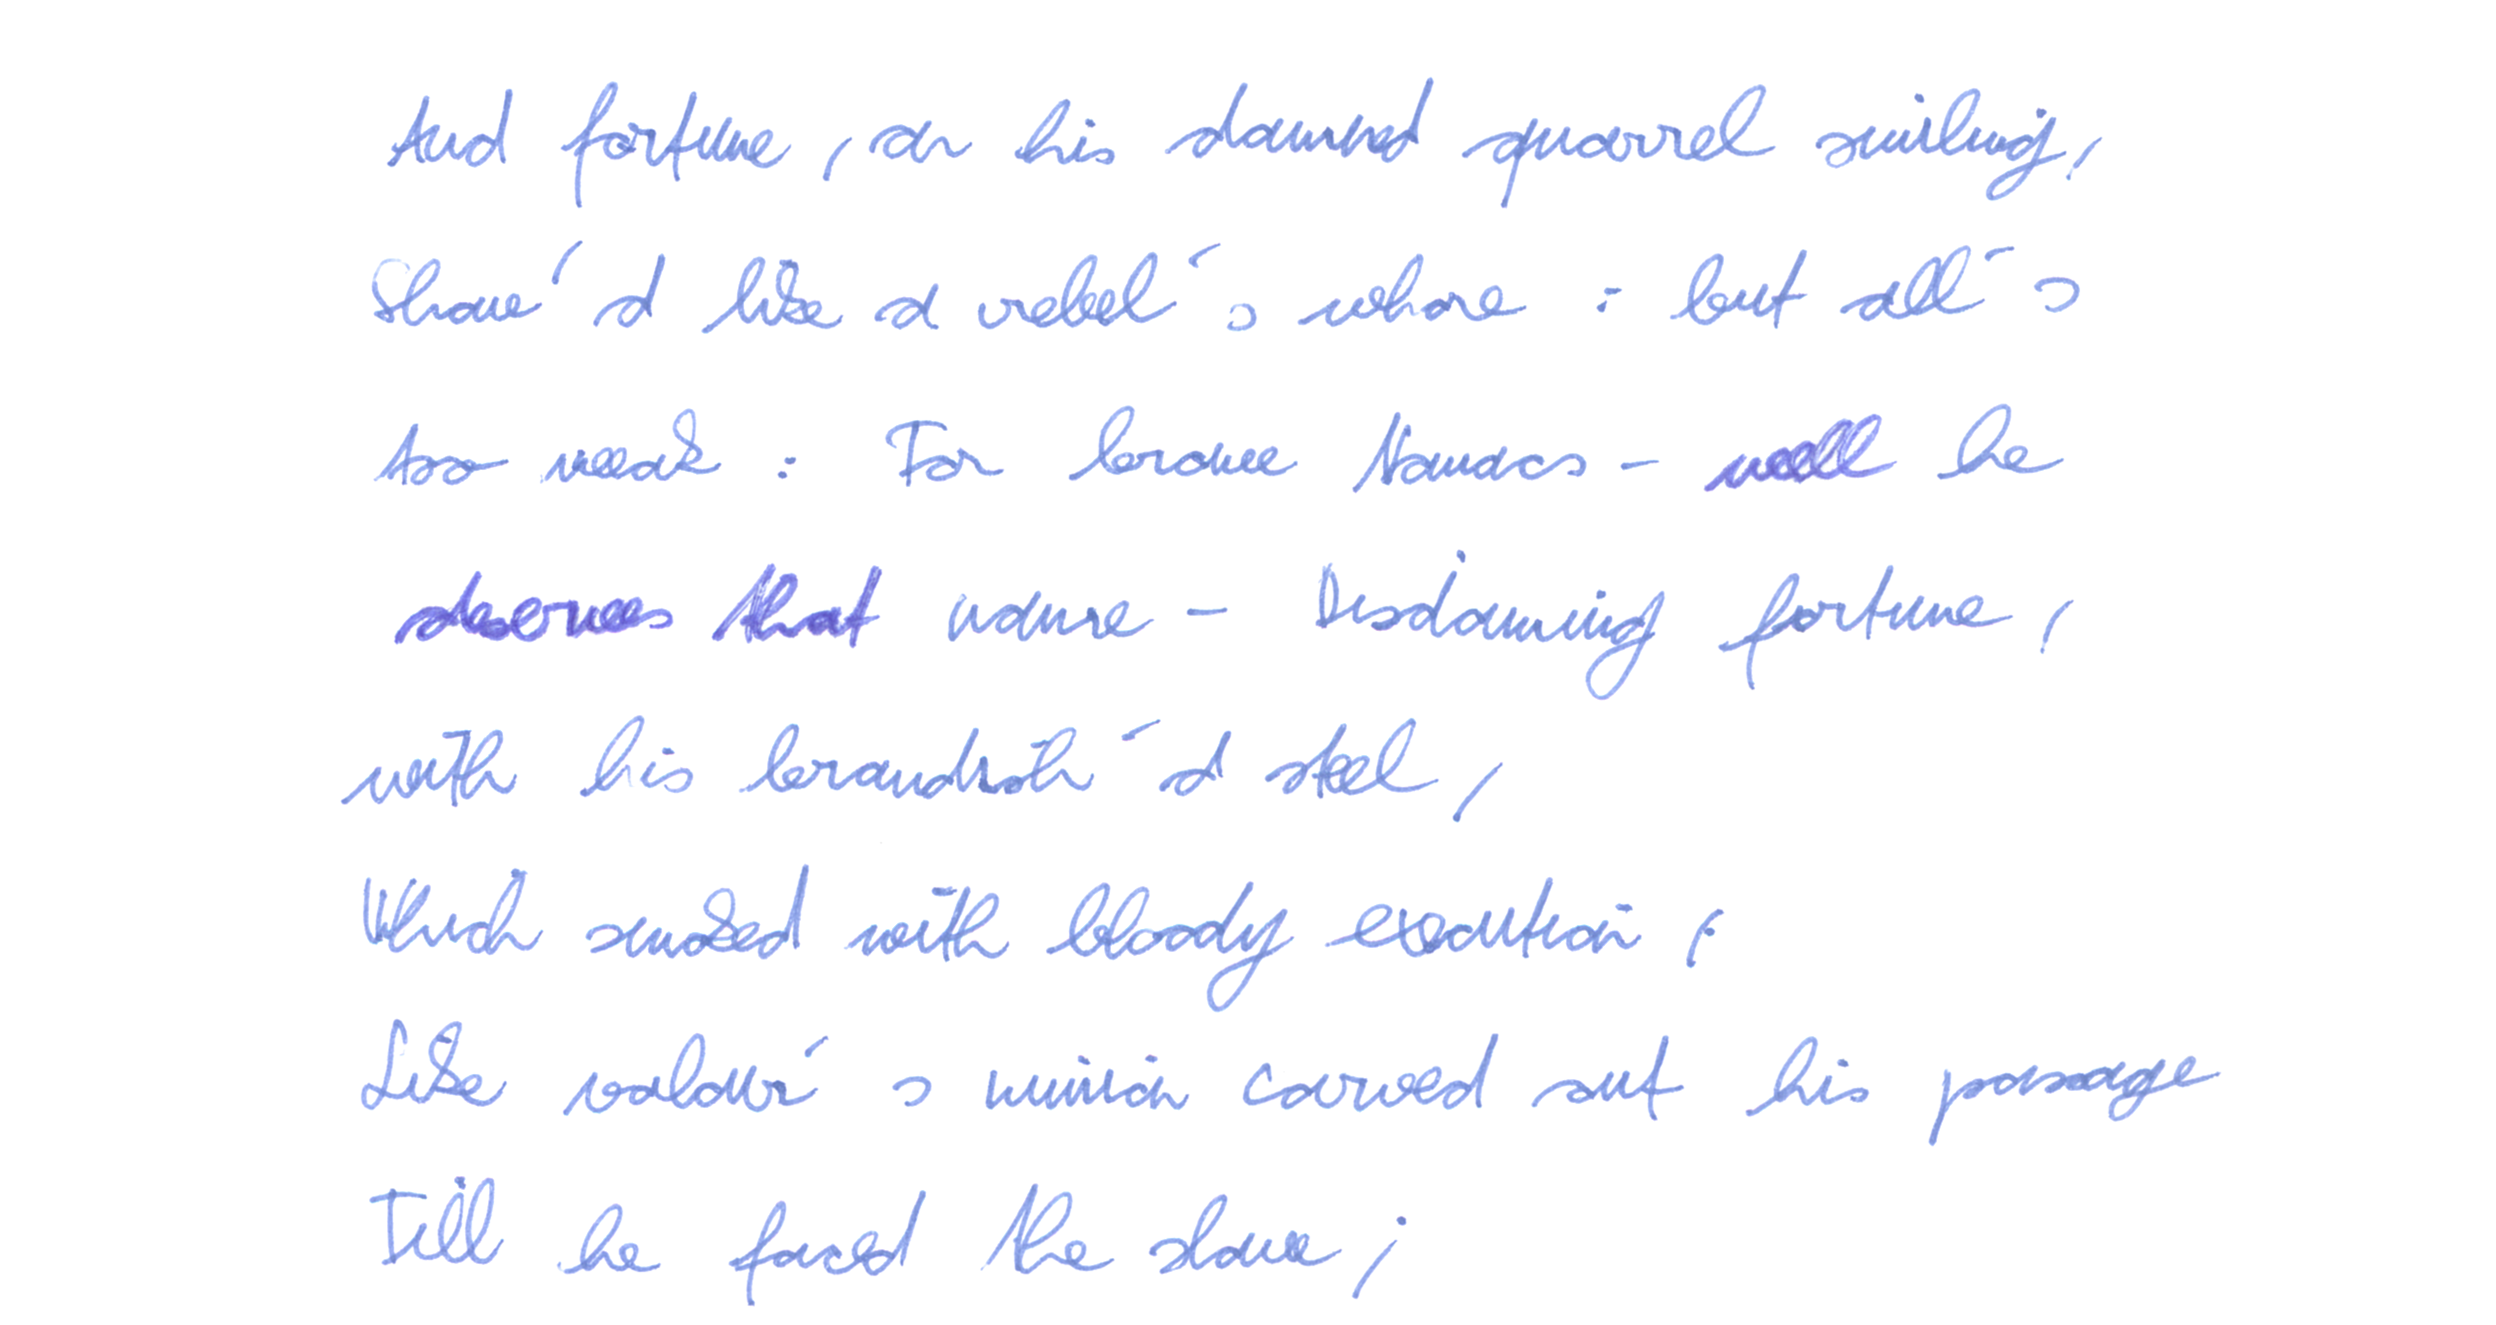 And fortune, on his damned quarrel smiling,
Show'd like a rebel's whore: but all's
too weak: For brave Macbeth - well he
deserves that name - Disdaining fortune,
with his brandish'd steel,
Which smoked with bloody execution,
Like valour's minion carved out his passage
Till he faced the slave;